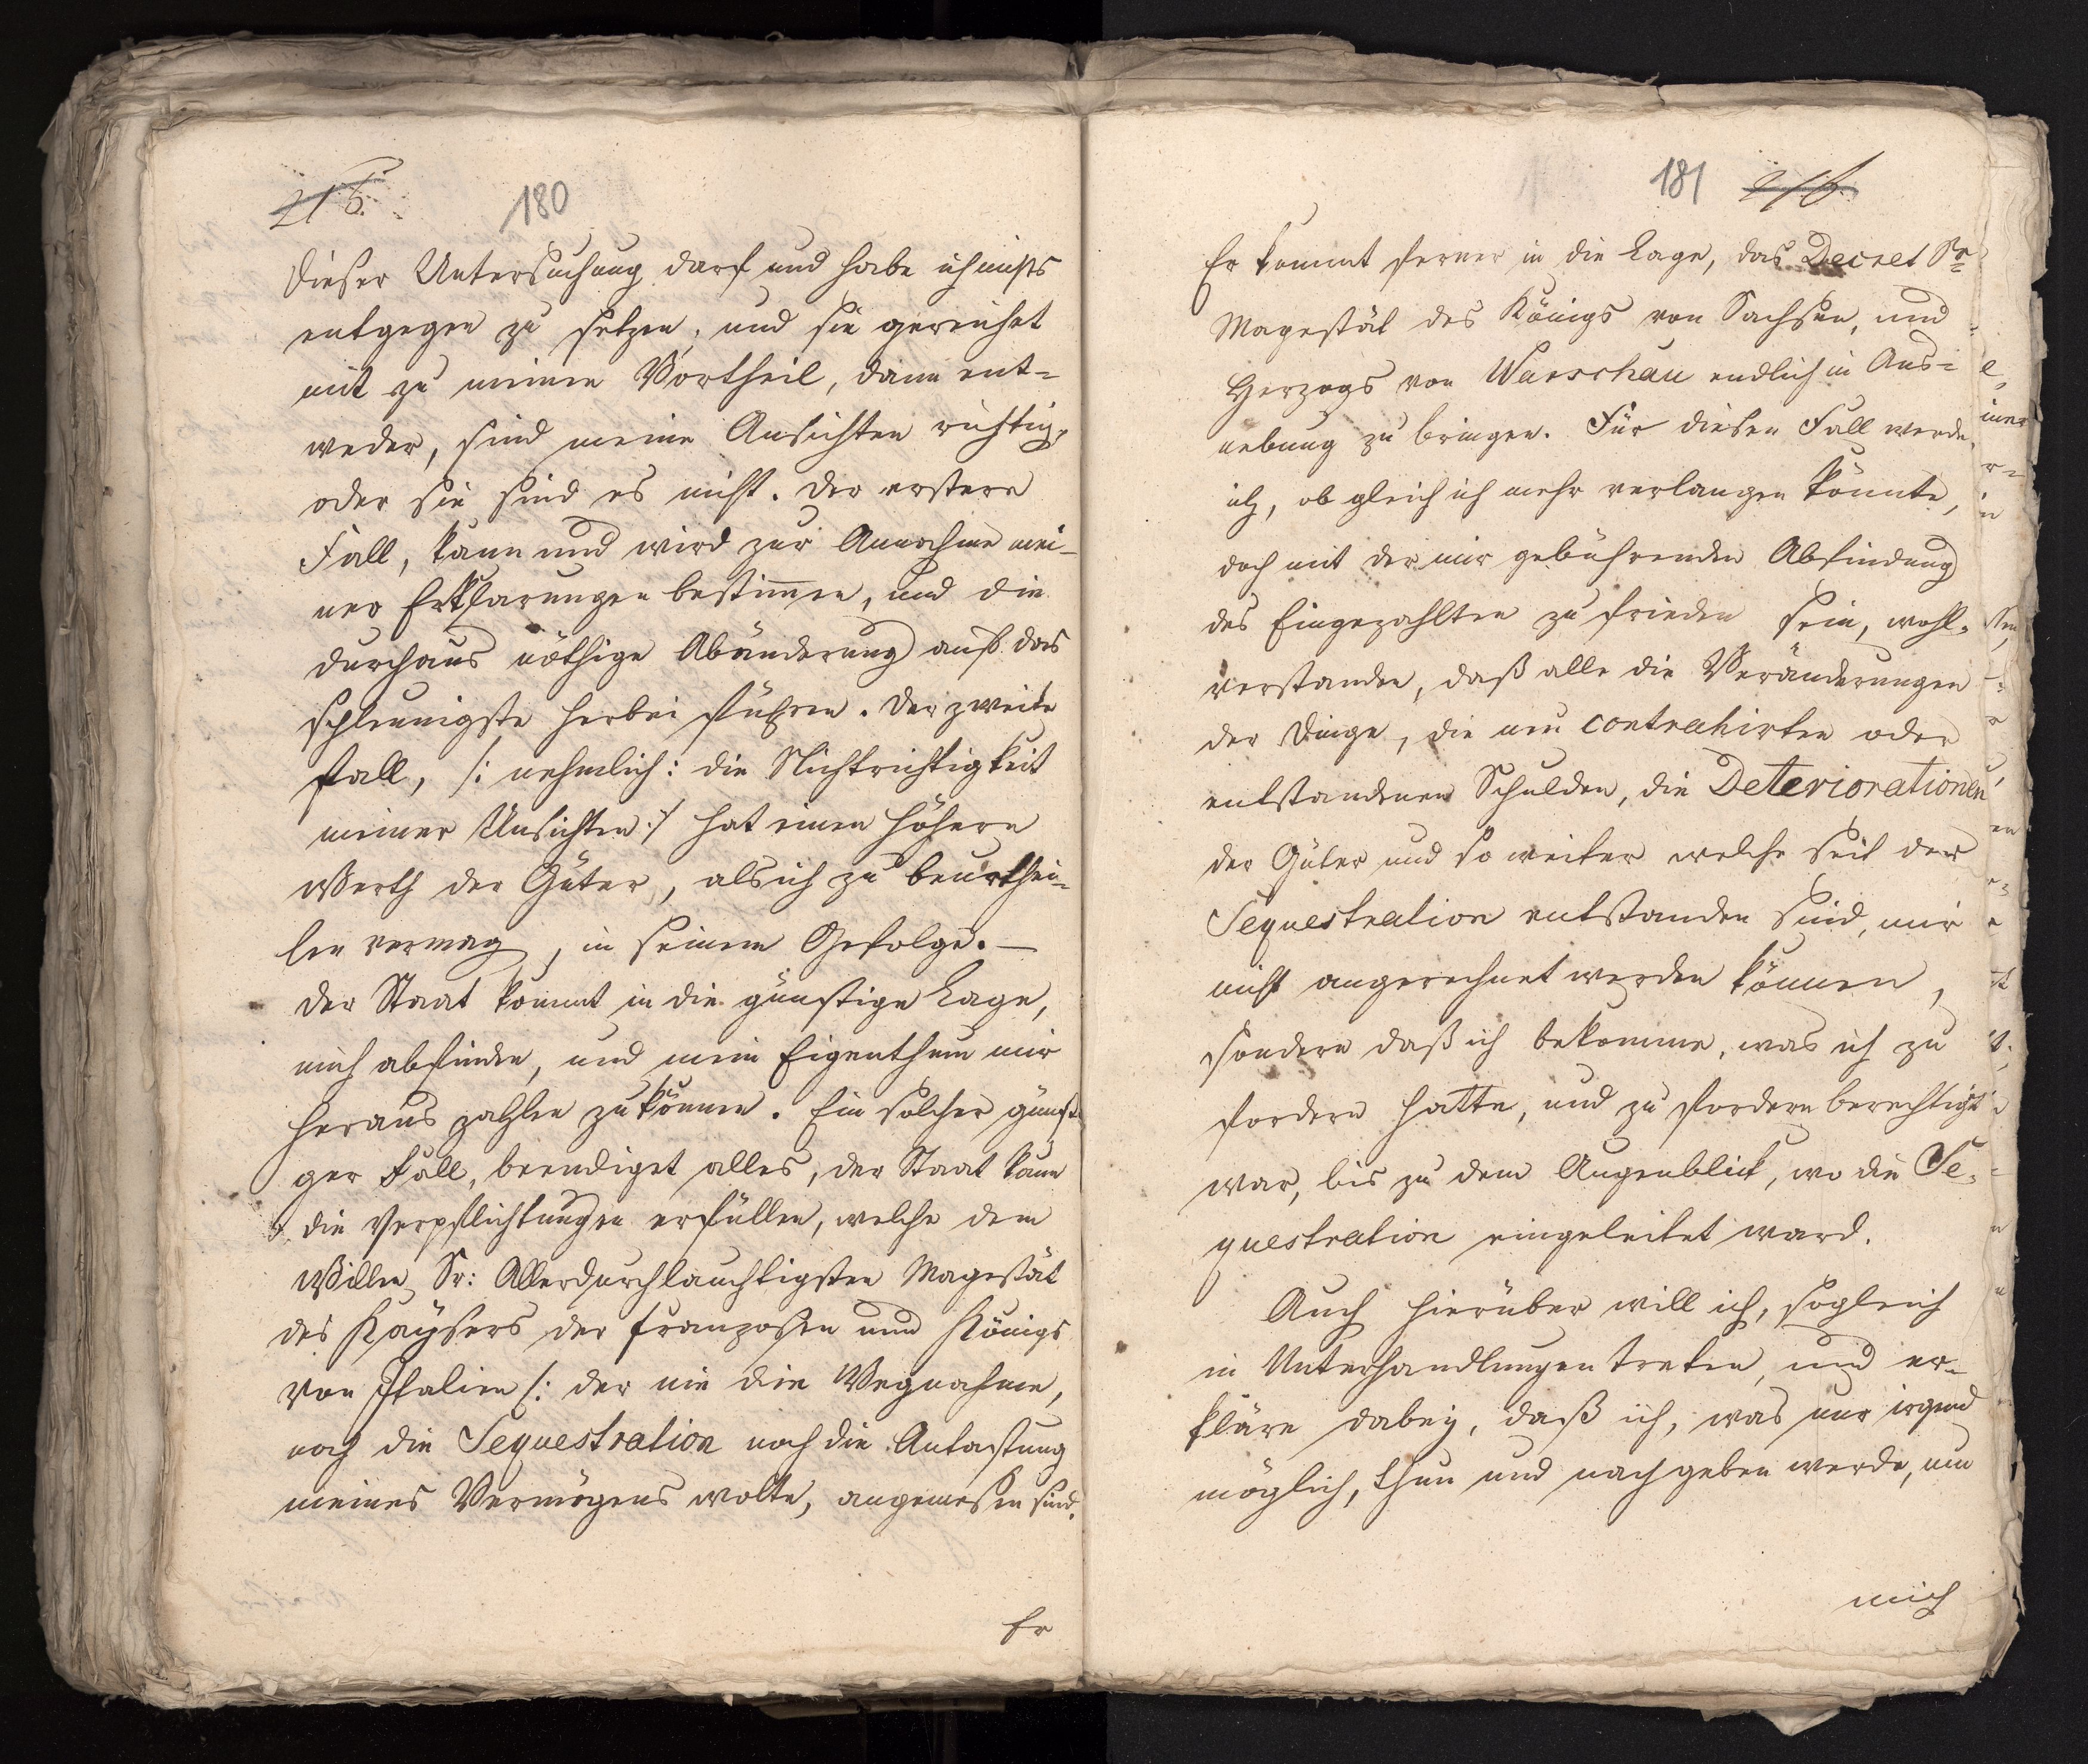 215.
180
Dieser Untersuchung darf und habe ich nichts
entgegen zu setzen, und sie gereichet
mit zu meinen Vortheil, dann ent-
weder, sind meine Ansichten richtig,
oder sie sind es nicht. Der erstere
Fall, kann und wird zur Annahme mei-
ner Erklärungen bestimmen, und die
durchaus nöthige Abänderung auf das
schleunigste herbei führen. Der zweite
fall, /: nehmlich: die Nichtrichtigkeit
meiner Ansichten :/ hat einen höhern
Werth der Güter, als ich zu beurthei-
len vermag, in seinem Gefolge. —
der Staat kommt in die günstige Lage,
mich abfinden, und mein Eigenthum mir
heraus zahlen zu können. Ein solcher günsti
ger Fall, beendiget alles, der Staat kann
die Verpflichtungen erfüllen, welche dem
Willen Sr: Allerdurchlauchtigsten Magestät
des Kaysers der franzosen und Königs
von Italien /: der nie die Wegnahme,
noch die Sequestration noch die Antastung
meines Vermögens wolte, angemessen sind.
Er
181
216.
Er kommt ferner in die Lage, das Decret Sr
Magestät des Königs von Sachsen, und
Herzogs von Warschau endlich in Aus-
uebung zu bringen. Für diesen Fall werde
ich, ob gleich ich mehr verlangen könnte,
doch mit der mir gebührenden Abfindung
des Eingezahlten zu frieden sein, wohl-
verstanden, daß alle die Veränderungen
der Dinge, die neu contrahirten oder
entstandenen Schulden, die Deteriorationen
der Güter und so weiter welche seit der
Sequestration entstanden sind, mir
nicht angerechnet werden können,
sondern daß ich bekomme, was ich zu
fordern hatte, und zu fordern berechtigt
war, bis zu dem Augenblick, wo die Se-
questration eingeleitet ward.
Auch hierüber will ich, sogleich
in Unterhandlungen treten, und er-
kläre dabey, daß ich, was nur irgend
möglich, thun und nach geben werde, um
mich